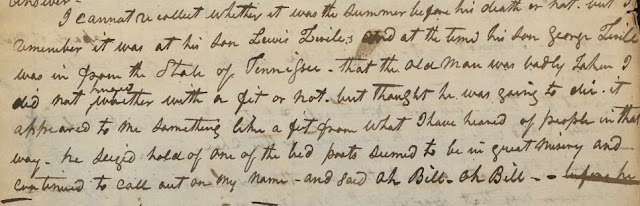 Answer -
I cannot recollect whether it was the summer before his death or not. but I
remember it was at his son Lewis Zwile,s and at the time his son George Zwile
was in from the State of Tennessee - that the old man was badly taken I
did not know whether with a fit or not. but thought he was going to die. it
appeared to me something like a fit from what I have heared of people in that
way - he seized hold of one of the bed posts seemed to be in great misery and
continued to call out on my name - and said Oh Bill - Oh Bill - - before he